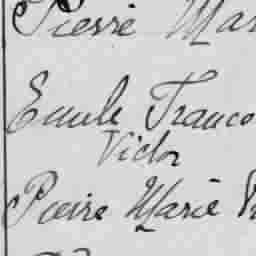 Pierre Mar
Emile Franco
Victor
Pierre Marie